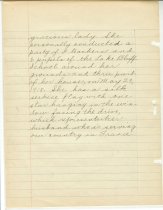 gracious lady. She
personally conducted a
party of 3 teachers and
pupils of the Lake Bluff
School around her
grounds and thru part
of her house, on May 22,
1918. She has a silk
service flag with one
star hanging in the win-
dow facing the drive,
which represents her
husband who is serving
our country in France.